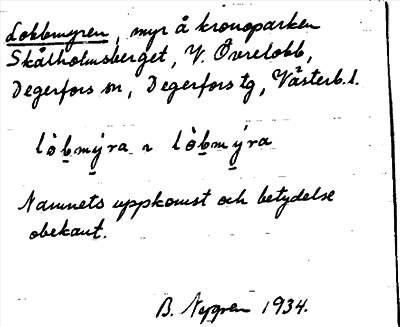 Lobbmyren, myr å kronoparken
Skålholmsberget, V. Övrelobb,
Degerfors sn, Degerfors tg, Västerb. l.
lòb̲mýra ~ lòb̲mýra
Namnets uppkomst och betydelse
obekant.
B. Nygren 1934.